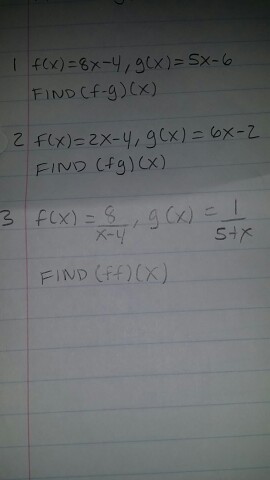 1 f(x)=8x-4, g(x)=5x-6
FIND (f-g)(x)
2 f(x)=2x-4, g(x)=6x-2
FIND (fg)(x)
3 f(x)=8/x-4, g(x)=1/5+x
FIND (ff)(x)